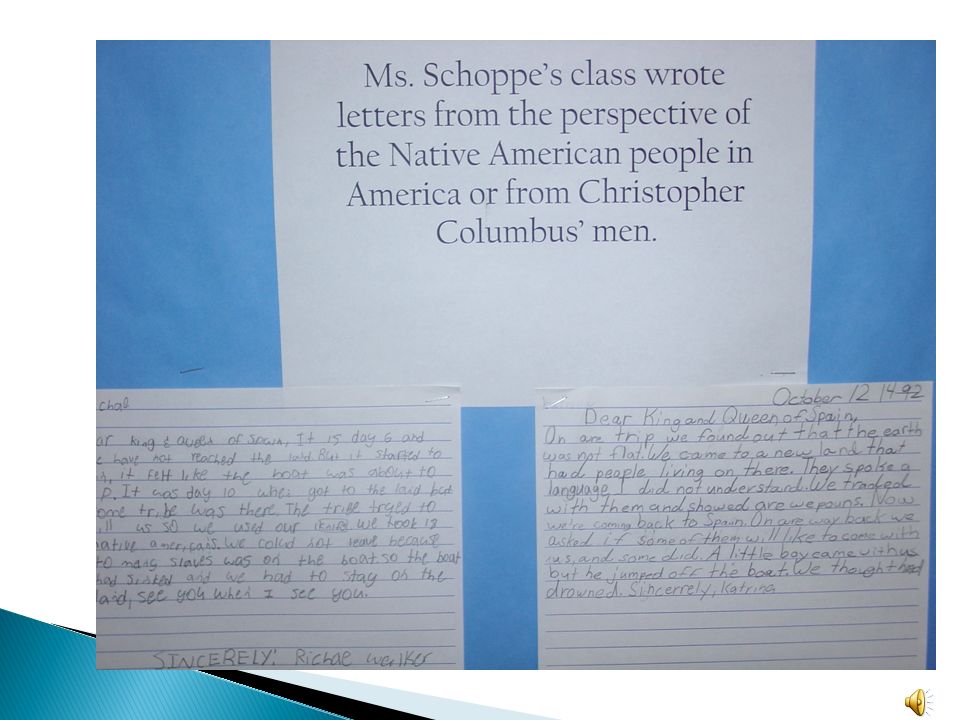 Ms. Schoppe's class wrote
letters from the perspective of
the Native American people in
America or from Christopher
Columbus' men.
chal
ar king & queen of spain, It is day 6 and
have not reached the laid. But it started to
it felt like the boat was about to
p. It was day 10 when got to the laid but
ome tribe was there. The tribe tryed to
ill us so we used our knife. we took 13
native americans. We could not leave because
to many slaves was on the boat so the boat
had sinked and we had to stay on the
land, see you when I see you.
SINCERELY: Richae walker
October 12 1492
Dear King and Queen of Spain,
On are trip we found out that the earth
was not flat. We came to a new land that
had people living on there. They spoke a
language I did not understand. We traded
with them and showed are wepouns. Now
we're coming back to Spain. On are way back we
asked if some of them will like to come with
us, and some did. A little boy came with us
but he jumped off the boat. We thought
drowned. Sincerrely, Katrina